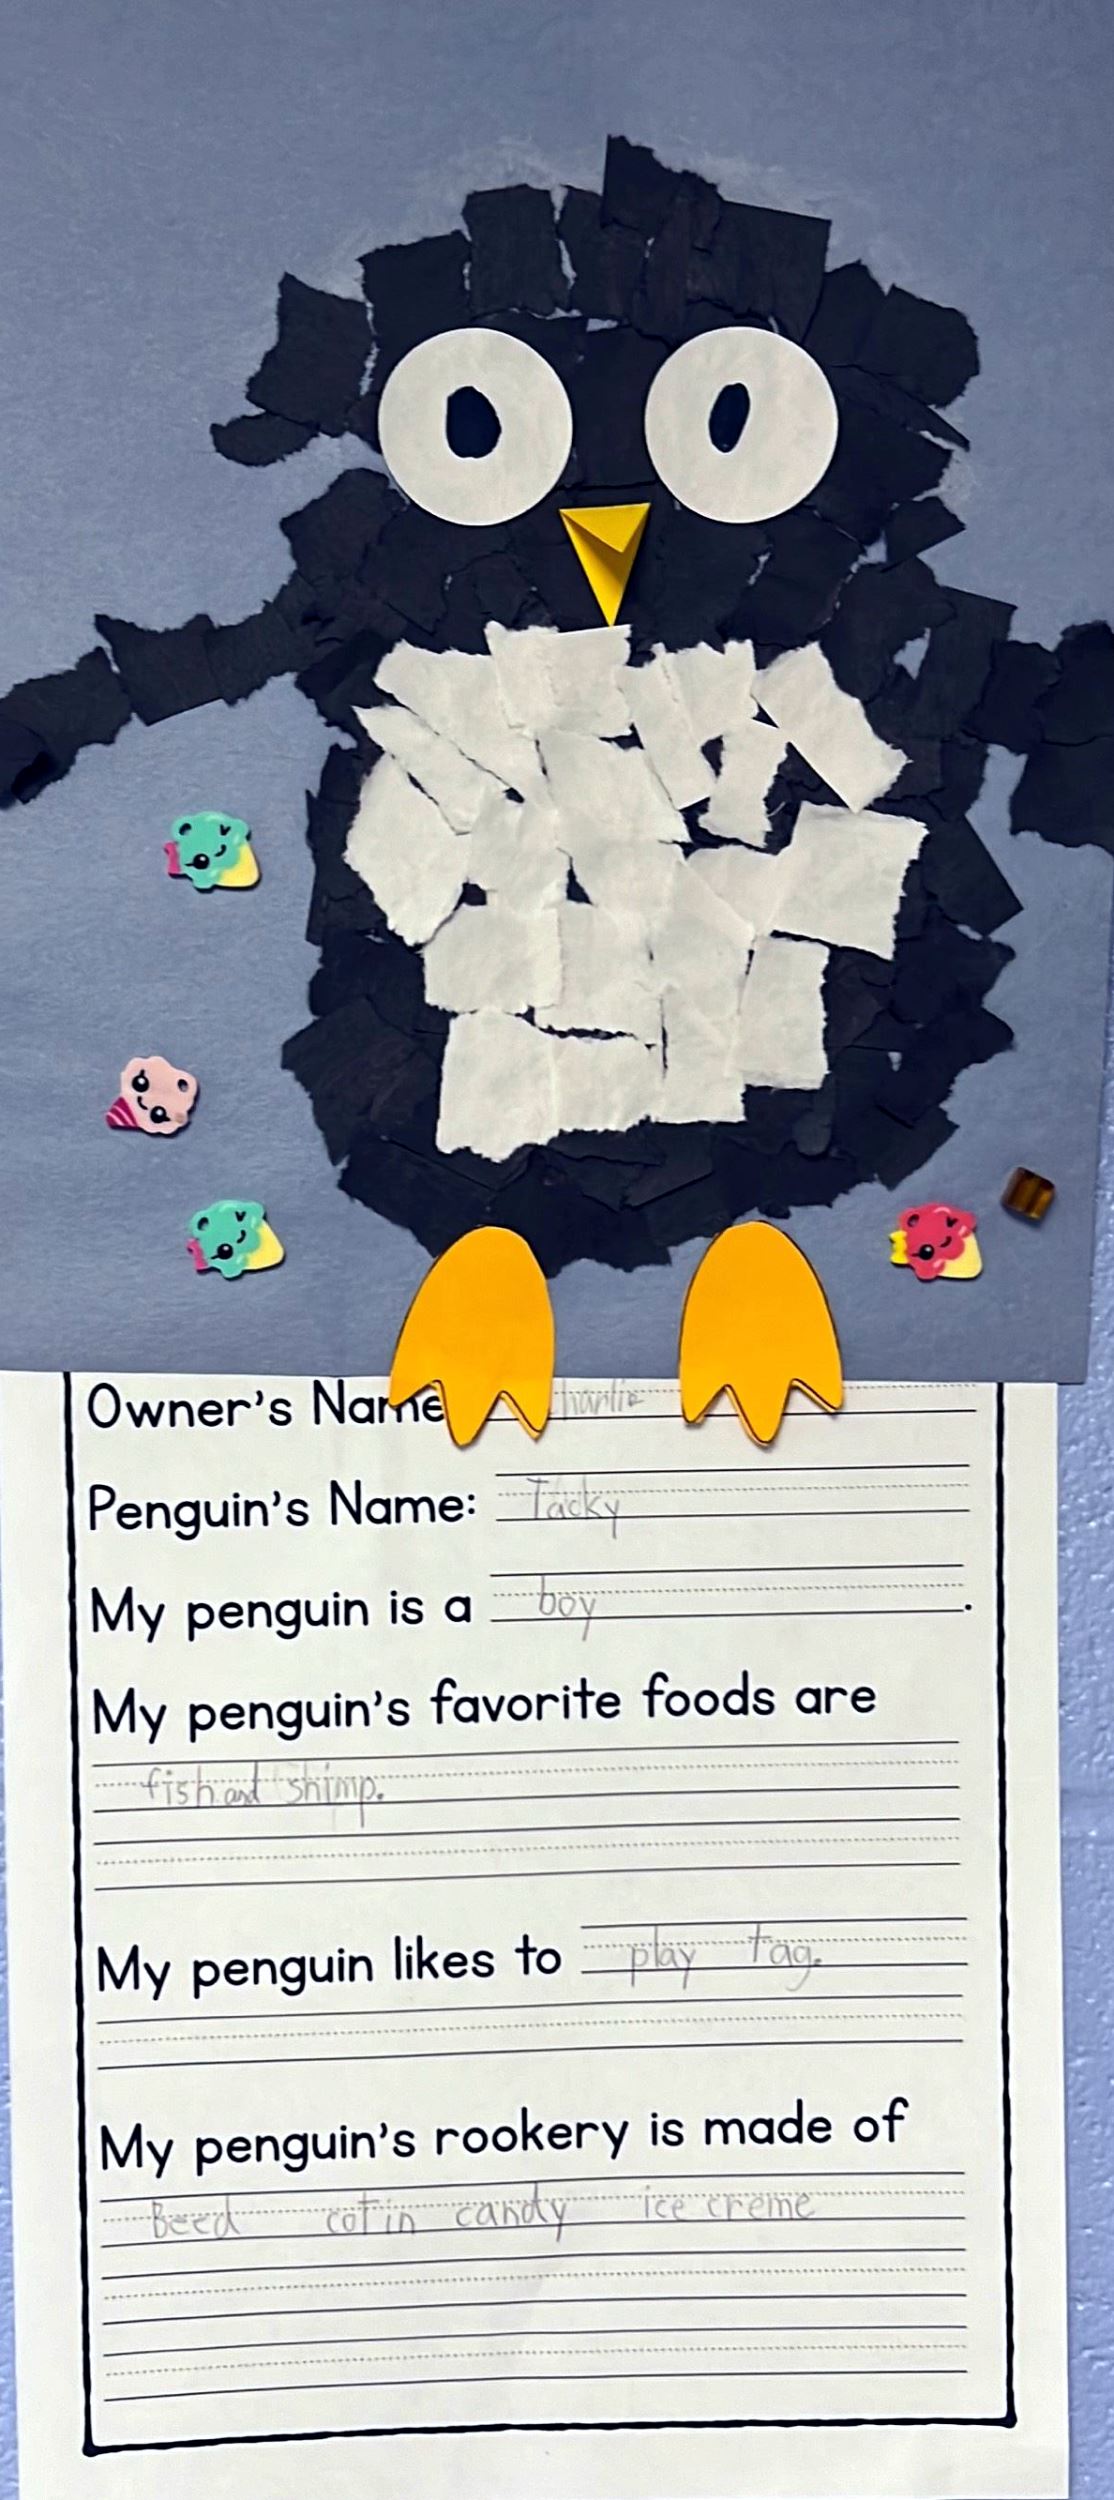 Owner's Name harlie
Penguin's Name: Tacky
My penguin is a boy.
My penguin's favorite foods are
fish and shimp.
My penguin likes to play tag.
My penguin's rookery is made of
Beed cotin candy ice creme